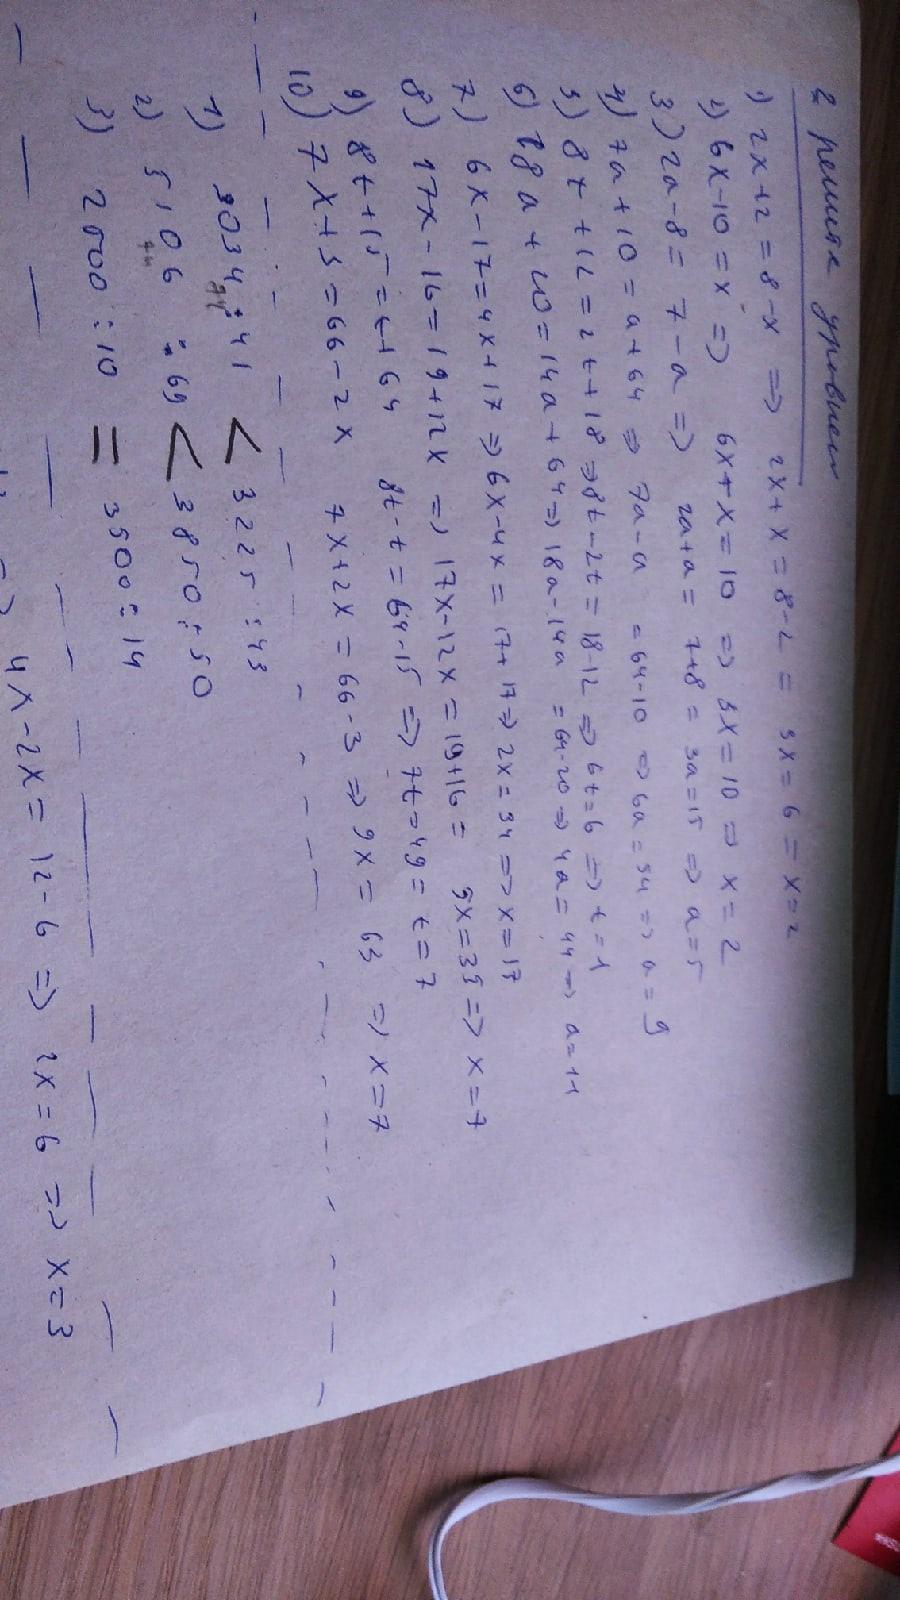 2 решил уровнен
1) 2x+2=8-x => 2x+x=8-2= 3x=6=x=2
2) 6x-10=x => 6x+x=10 => 5x=10 => x=2
3) 2a-8=7-a => 2a+a=7+8=3a=15 => a=5
4) 7a+10=a+64 => 7a-a=64-10 => 6a=54 => a=9
5) 8t+12=2t+18 => 8t-2t=18-12 => 6t=6 => t=1
6) 18a+20=14a+64 => 18a-14a=64-20 => 4a=44 => a=11
7) 6x-17=4x+17 => 6x-4x=17+17 => 2x=34 => x=17
8) 17x-16=19+12x => 17x-12x=19+16= 5x=35 => x=7
9) 8t+15=t+64 8t-t=64-15 => 7t=49=t=7
10) 7x+3=66-2x 7x+2x=66-3 => 9x=63 => x=7
1) 3034:41 < 3225:43
2) 5106:69 < 3850:50
3) 2500:10 = 3500:14
4x-2x=12-6 => 2x=6 => x=3